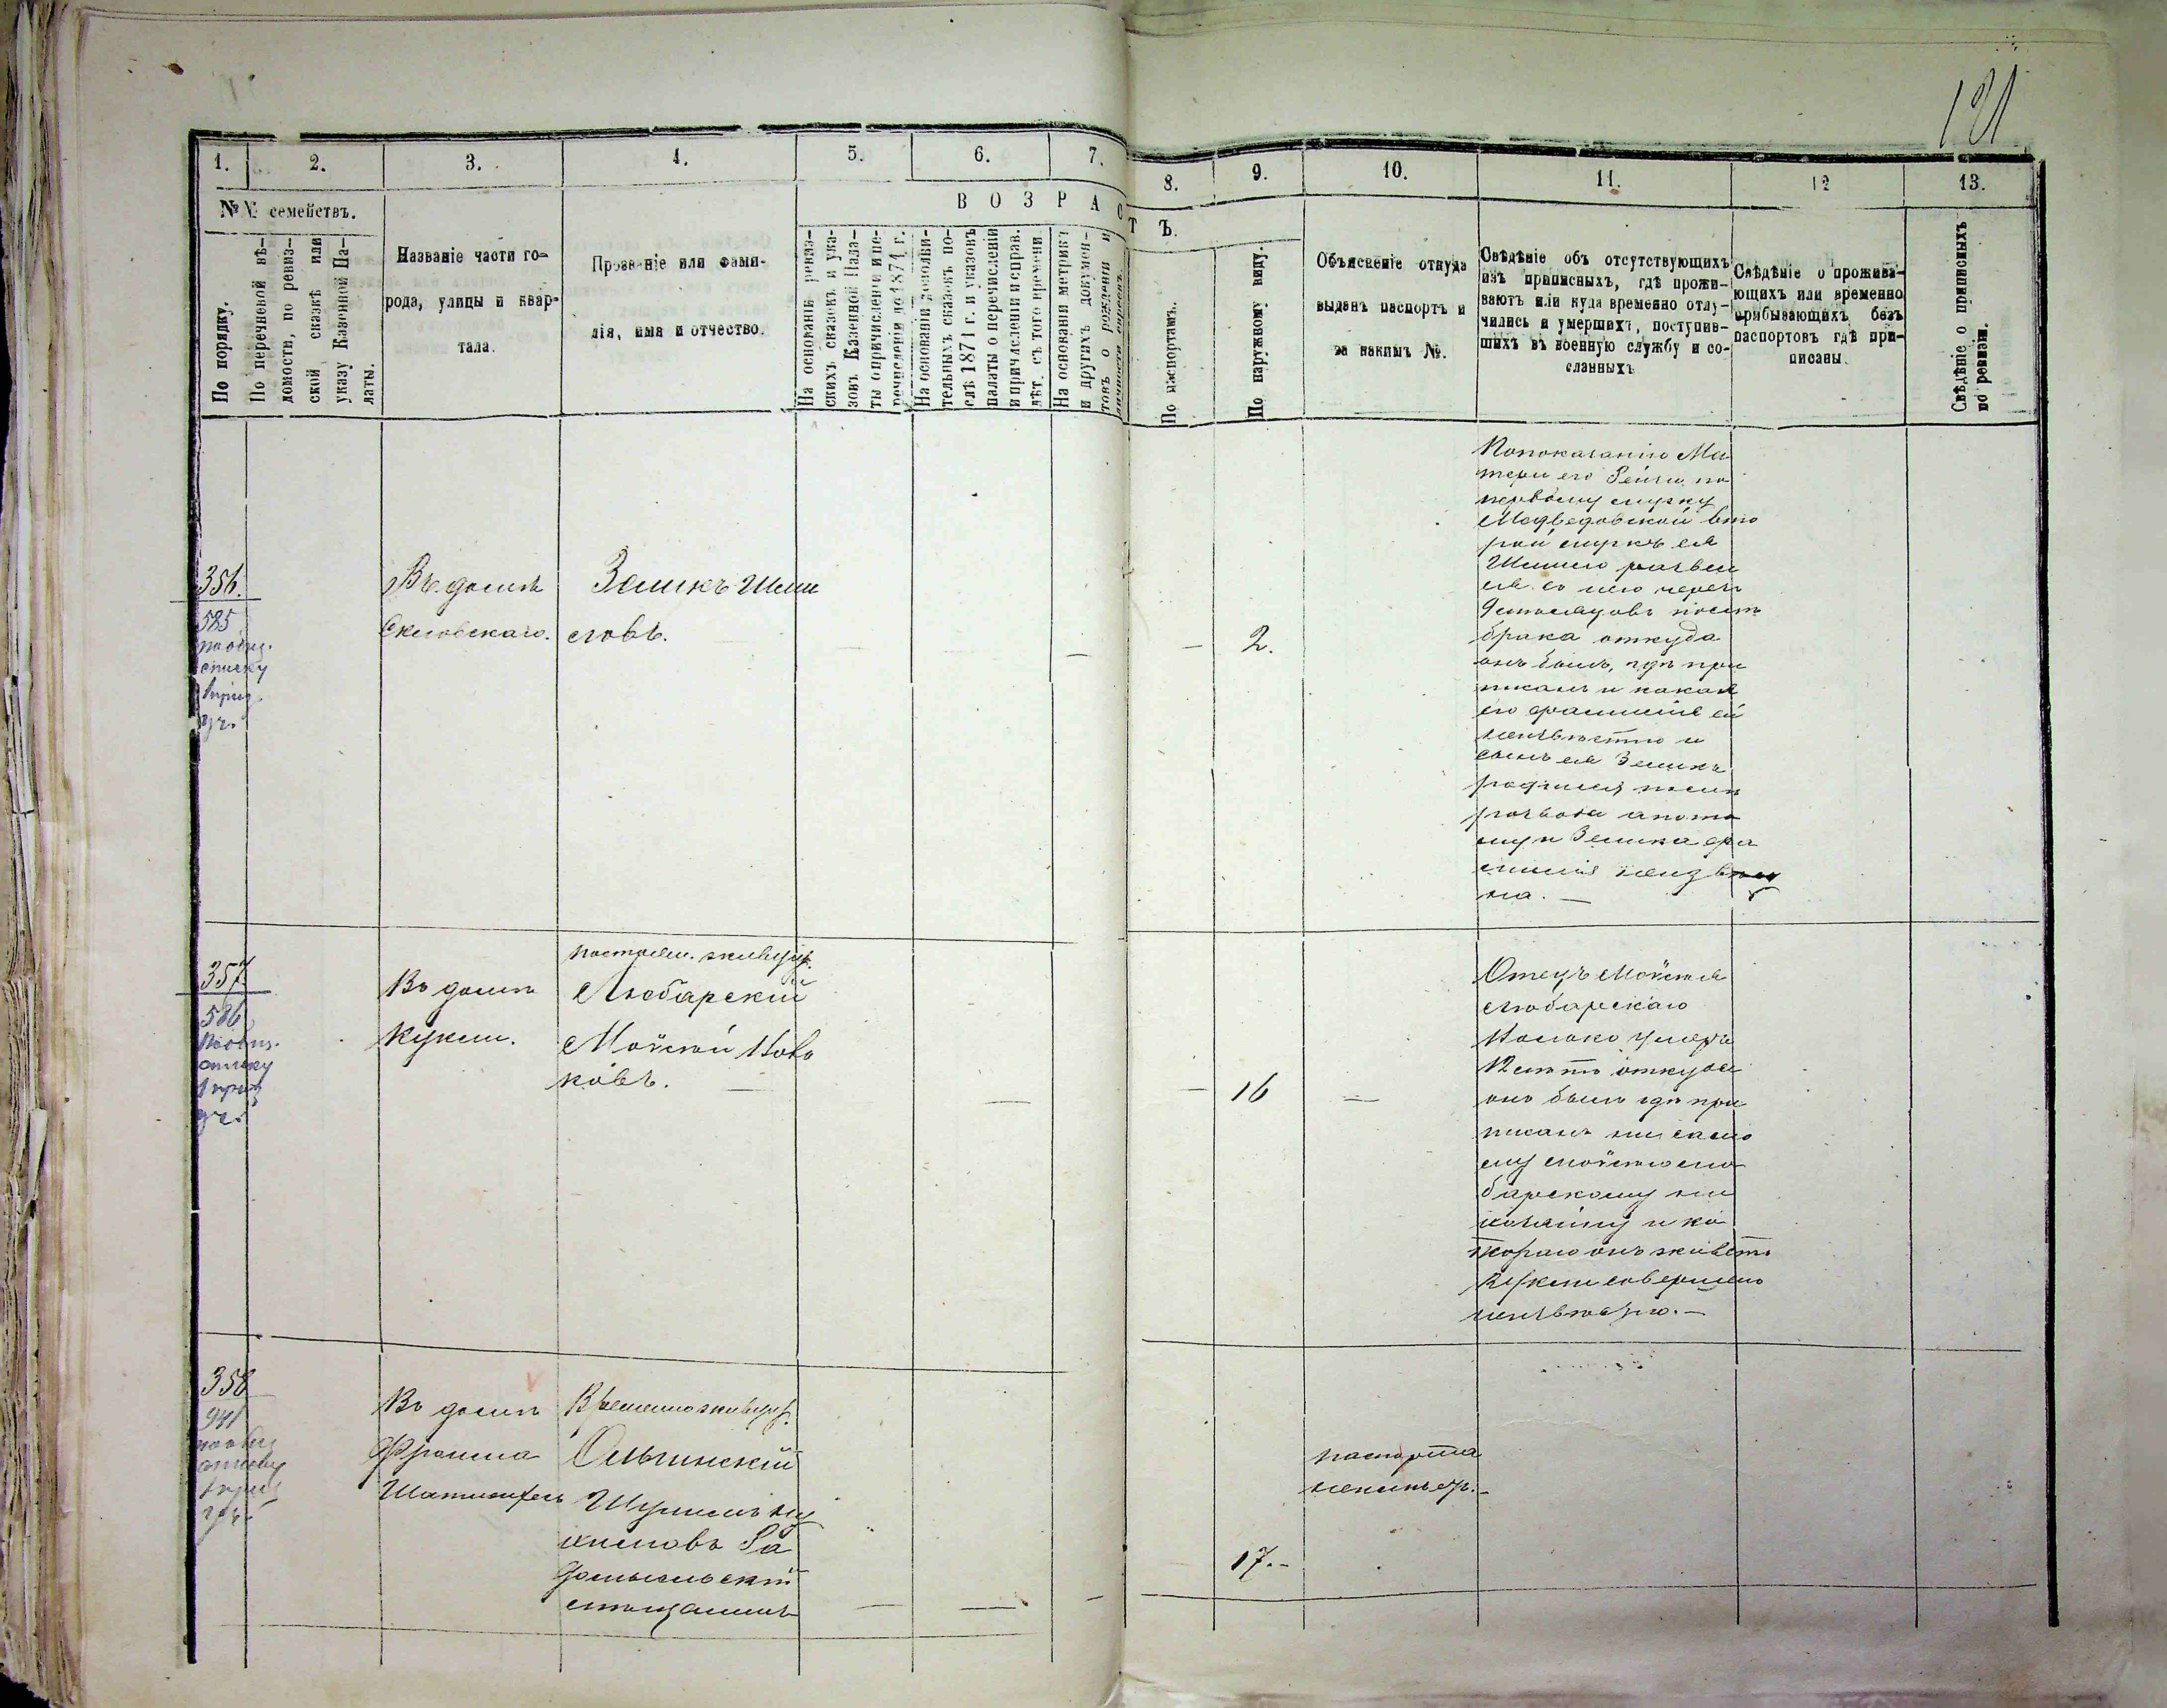 121
1. 2. 3. 4. 5. 6. 7. 8. 9. 10. 11. 12 13.
№№ семействъ.
В О З Р А С Т Ъ.
По порядку.
По перечневой вѣ-
домости, по ревиз-
ской сказкѣ или
указу Казенной Па-
латы.
Названіе части го-
рода, улицы и квар-
тала.
Прозваніе или фами-
лія, имя и отчество.
На основаніи ревиз-
скихъ сказокъ и ука-
зовъ Казенной Пала-
ты о причисленіи и пе-
речисленіи до 1874 г.
На основаніи дополни-
тельныхъ сказокъ по-
слѣ 1874 г. и указовъ
палаты о перечисленіи
и причисленіи и справ.
лѣт. съ того времени
На основаніи метрикъ
и другихъ докумен-
товъ о рожденіи и
По паспортамъ.
По наружному виду.
Объясненіе откуда
выданъ паспортъ и
за какимъ №.
Свѣдѣніе объ отсутствующихъ
изъ приписныхъ, гдѣ прожи-
ваютъ или куда временно отлу-
чились и умершихъ, поступив-
шихъ въ военную службу и со-
сланныхъ
Свѣдѣніе о прожива-
ющихъ или временно
прибывающихъ безъ
паспортовъ гдѣ при-
писаны.
Свѣдѣніе о приписныхъ
по ревизіи.
356.
585
по общ.
списку
Въ домѣ
Земикъ
2.
По показанію Ма
тери его по
первому мужу
Медведовской вто
рой мужъ ея
развел
ся съ нею черезъ
9 месяцовъ послѣ
брака откуда
онъ былъ, гдѣ при
писанъ и какая
его фамилія ей
неизвѣстно и
сынъ ея Земикъ
родился послѣ
развода а пото
му и Земика фа
милія неизвѣст
на. —
357.
586
по общ.
списку
Въ домѣ
Кукли.
постоян. живущ.
Любарскій
Мойсей
16
Отецъ Мойсея
Любарскаго
умеръ
12 лѣтъ откуда
онъ былъ гдѣ при
писанъ ни само
му Мойсею Лю
барскому ни
хозяину у ко
тораго онъ живетъ
Кукли совершено
неизвѣстно. —
358
941
по общ
списку
Въ домѣ
Временно живущ.
Ольшнскій
Ра
домысльскій
мѣщанинъ
17.-
паспорта
неимѣетъ. -